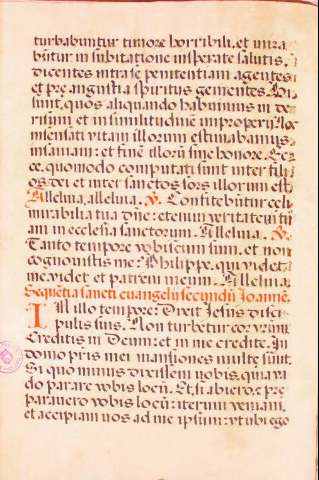 turbabuntur timore horribili, et mira
bũtur in subitatione insperate salutis,
dicentes intra se penitentiam agentes
et pre angustia spiritus gementes. Hi
sunt, quos aliquando habuimus in de
risum et in similitudinẽ improperij. Nos
insensati vitam illorum estimabamus
insaniam: et finẽ illorũ sine honore. Ec
ce, quomodo computati sunt inter fili
os dei et inter sanctos sors illorum est.
Alleluia, alleluia. V. Confitebũtur celi
mirabilia tua dñe: etenim veritatẽ tuã
in ecclesia sanctorum. Alleluia. V.
Tanto tempore vobiscum sum, et non
cognovistis me? Philippe, qui videt
me, videt et patrem meum. Alleluia.
Sequẽtia sancti euangelij secundũ Joannẽ.
In illo tempore: Dixit Jesus disci
pulis suis. Non turbetur cor vestrũ.
Creditis in Deum: et in me credite. In
domo pr̃is mei mansiones multe sunt.
Si quo minus dixissem vobis, quia va
do parare vobis locũ. Et si abiero, et pre
paravero vobis locũ: iterum veniam,
et accipiam vos ad me ipsum: ut ubi ego